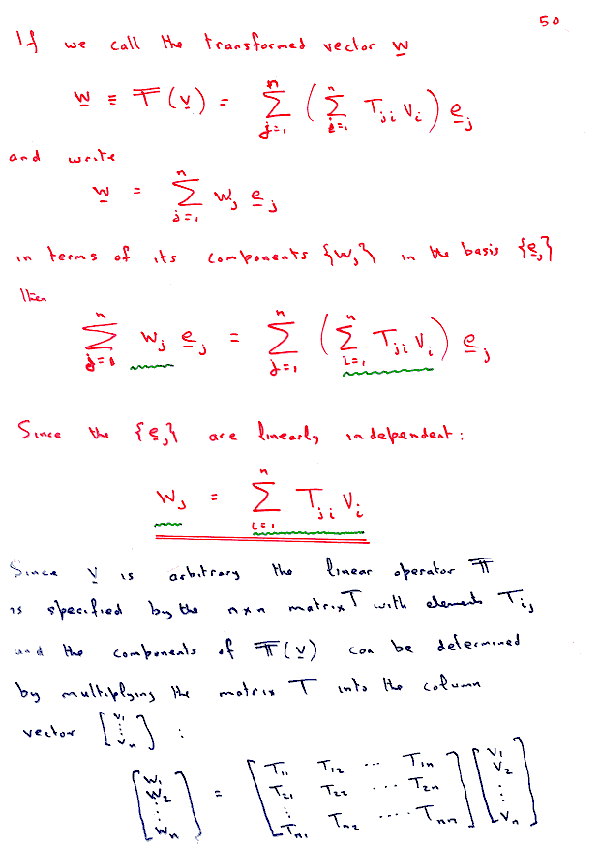 50
If we call the transformed vector w
w ≡ T(v) = Σ_{j=1}^{n} ( Σ_{i=1}^{n} T_{ji} v_i ) e_j
and write
w = Σ_{j=1}^{n} w_j e_j
in terms of its components {w_j} in the basis {e_j}
then
Σ_{j=1}^{n} w_j e_j = Σ_{j=1}^{n} ( Σ_{i=1}^{n} T_{ji} v_i ) e_j
Since the {e_j} are linearly independent :
w_j = Σ_{i=1}^{n} T_{ji} v_i
Since v is arbitrary the linear operator T
is specified by the n×n matrix T with elements T_{ij}
and the components of T(v) can be determined
by multiplying the matrix T into the column
vector [v_1 ⋮ v_n] :
[w_1 w_2 ⋮ w_n] = [T_{11} T_{12} ... T_{1n} T_{21} T_{22} ... T_{2n} T_{n1} T_{n2} .... T_{nn}] [v_1 v_2 ⋮ v_n]